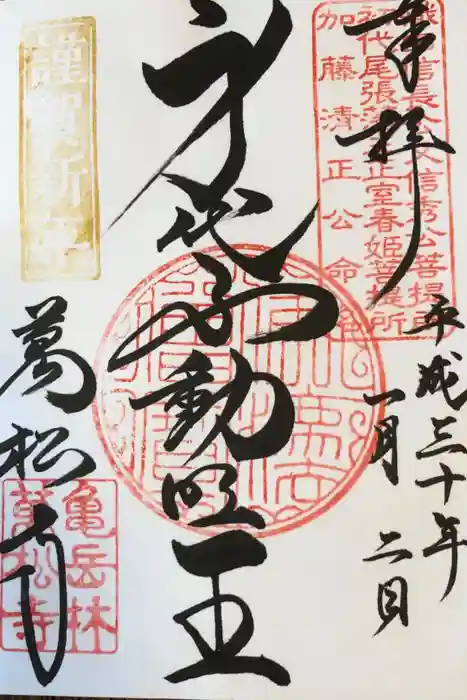 奉拝
織田信長公父信秀公菩提所
初代尾張藩主正室春姫菩提所
加藤清正公命名
平成三十年
一月二日
身代不動明王
謹賀新年
萬松寺
亀岳林
萬松寺